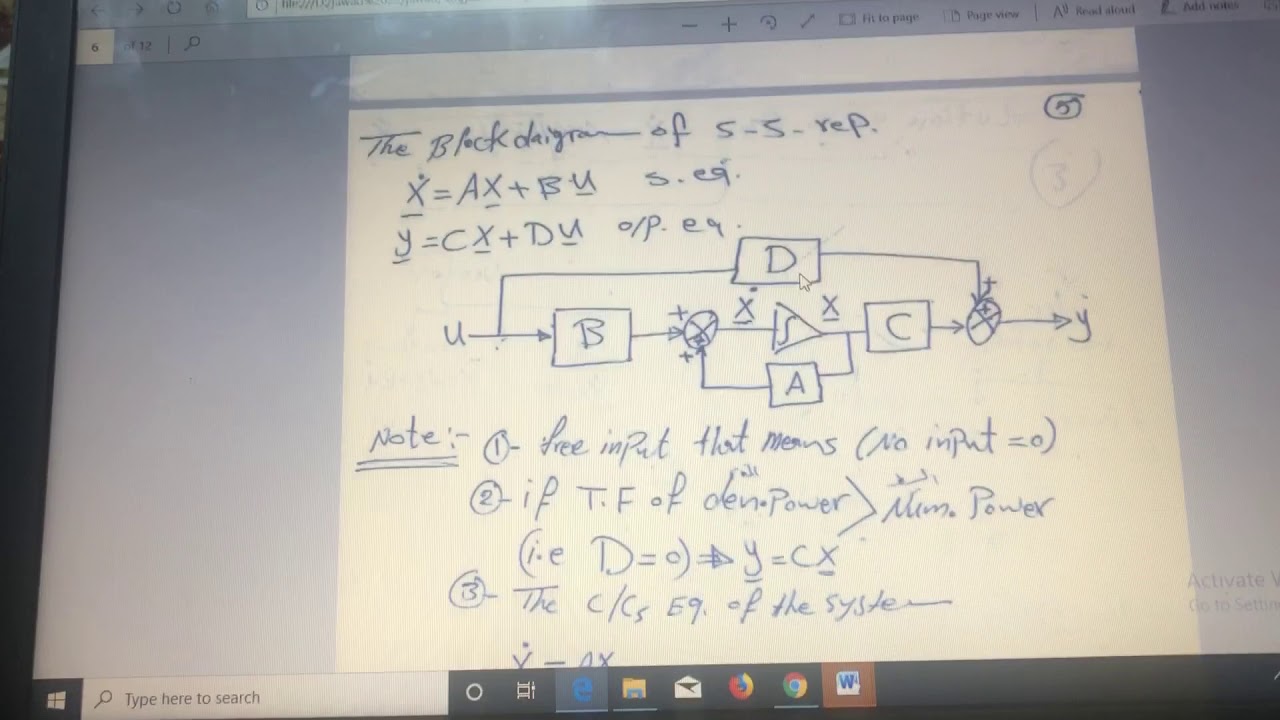 6 of 12
Fit to page Page view Read aloud Add notes
5
The Block daigram of S-S-rep.
3
Ẋ = AX + BU S.eq.
y = CX + DU o/p. eq.
D
+
U B + Ẋ ∫ X C + y
+
A
Note:- ①- free input that means (No input = 0)
②- if T.F of den. Power > Num. Power
(i.e D = 0) ⇒ y = CX
③- The C/Cs Eq. of the system
Ẋ = AX
Activate W
Go to Settin
Type here to search